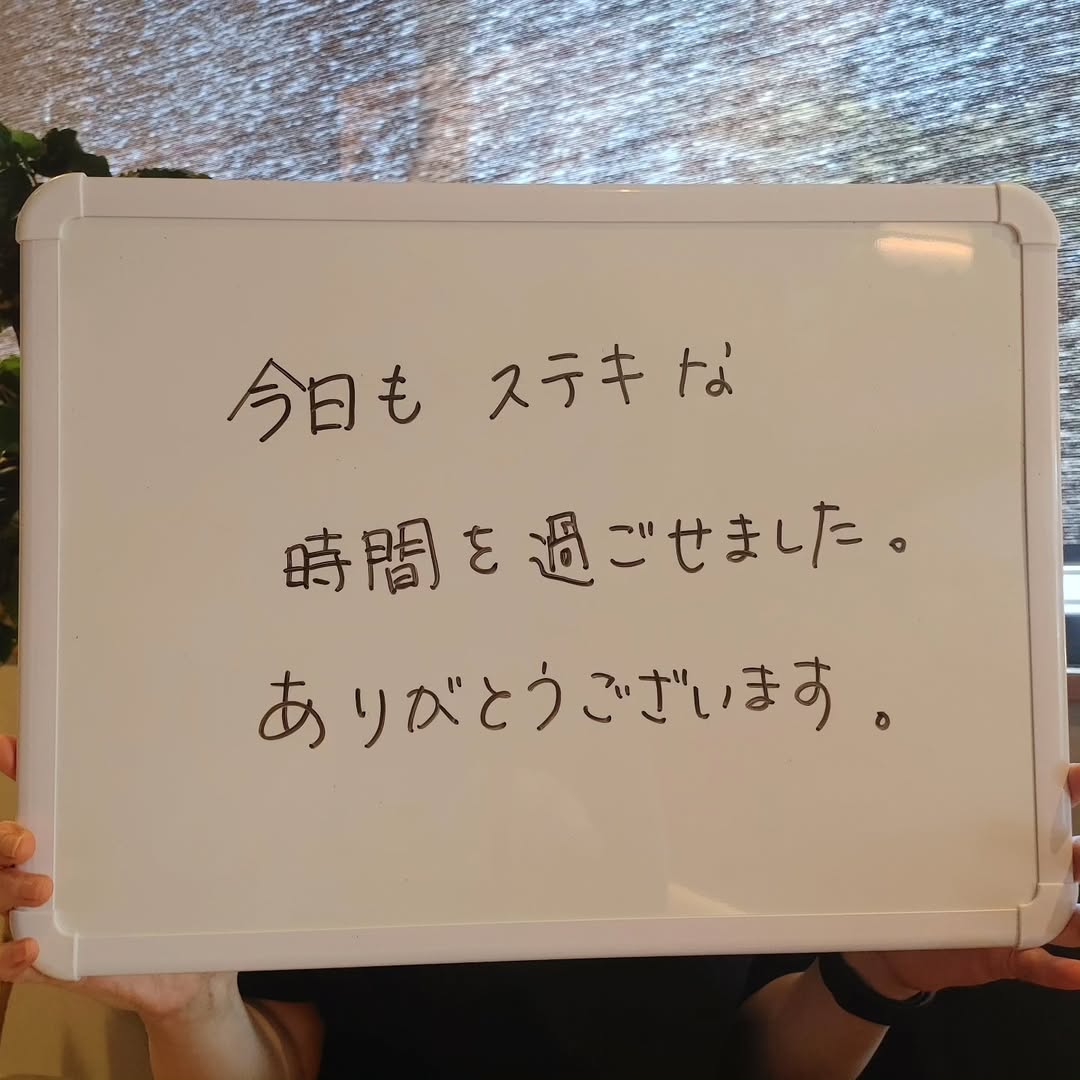 今日も ステキな
時間を過ごせました。
ありがとうございます。